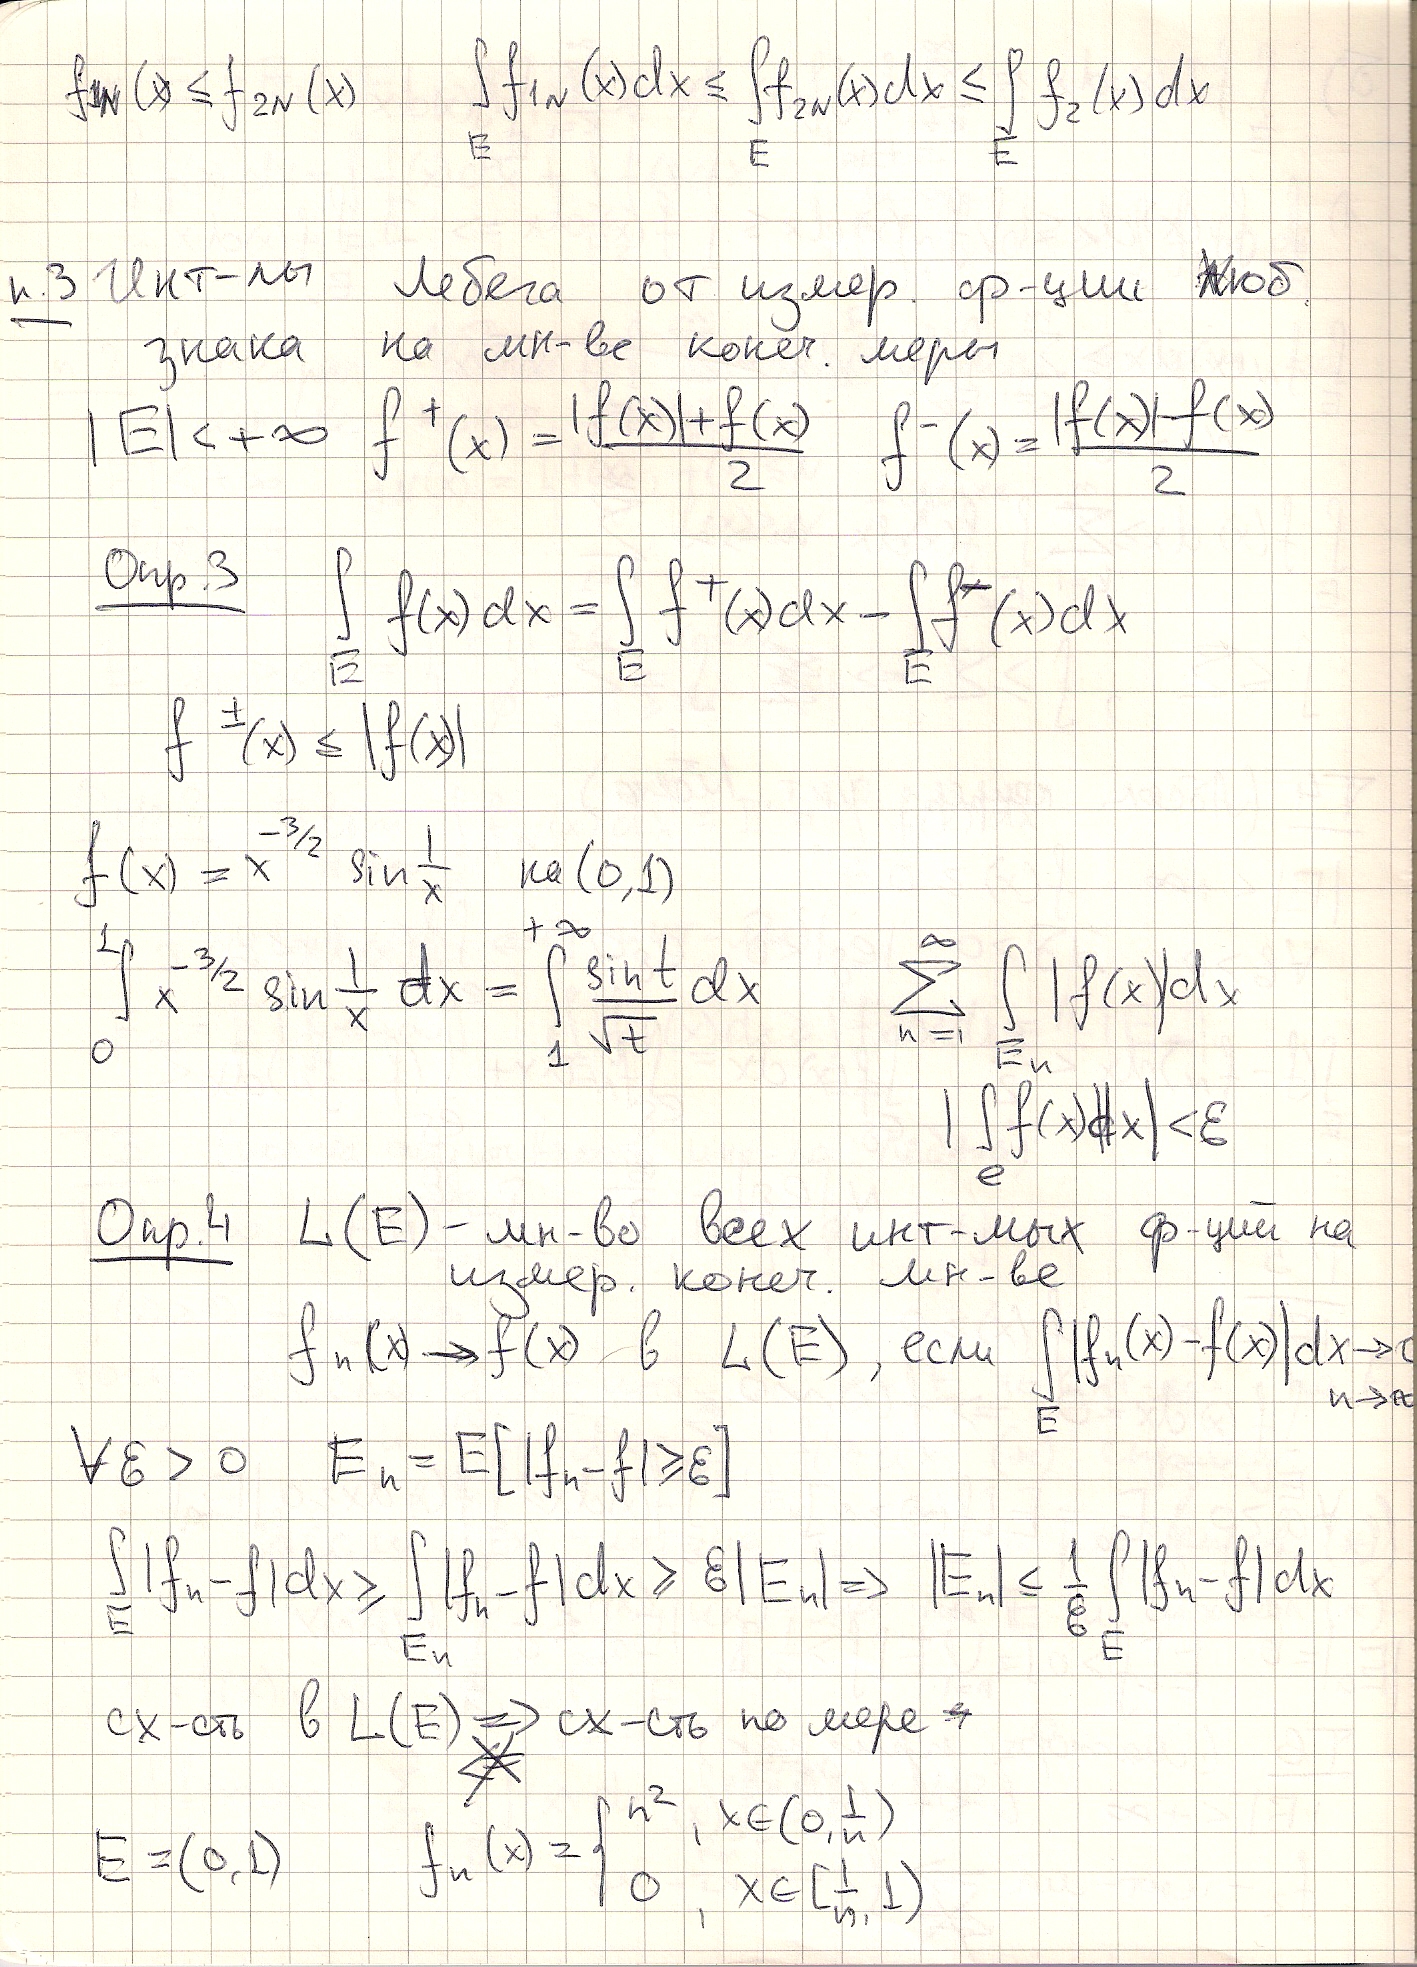 f₁N(x) ≤ f₂N(x) ∫_E f₁N(x)dx ≤ ∫_E f₂N(x)dx ≤ ∫_E f₂(x)dx
п.3 Инт-лы Лебега от измер. ф-ции люб.
знака на мн-ве конеч. меры
|E| < +∞ f⁺(x) = (|f(x)|+f(x))/2 f⁻(x) = (|f(x)|-f(x))/2
Опр.3 ∫_E f(x)dx = ∫_E f⁺(x)dx - ∫_E f⁻(x)dx
f^±(x) ≤ |f(x)|
f(x) = x^{-3/2} sin 1/x на (0,1)
∫_0^1 x^{-3/2} sin 1/x dx = ∫_1^{+∞} sin t/√t dx ∑_{n=1}^∞ ∫_{E_n} |f(x)|dx
|∫_e f(x)dx| < ε
Опр.4 L(E) - мн-во всех инт-мых ф-ций на
измер. конеч. мн-ве
f_n(x) → f(x) в L(E), если ∫_E |f_n(x) - f(x)|dx → 0
n→∞
∀ε > 0 E_n = E[|f_n - f| ≥ ε]
∫_E |f_n - f|dx ≥ ∫_{E_n} |f_n - f|dx ≥ ε|E_n| => |E_n| ≤ 1/ε ∫_E |f_n - f|dx
сх-сть в L(E) => сх-сть по мере
E = (0,1) f_n(x) = { n², x∈(0,1/n)
0, x∈[1/n,1)